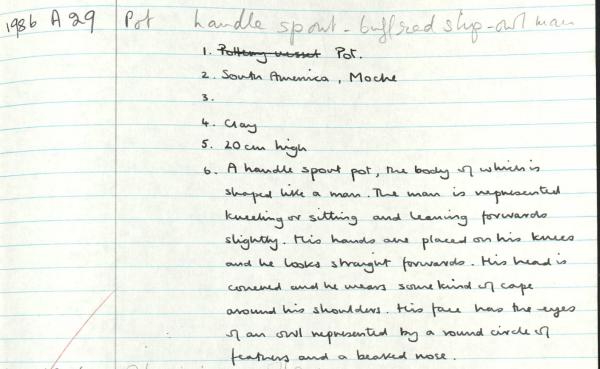 1986 A 29 Pot handle spout - buff, red slip - owl man
1. Pottery vessel Pot.
2. South America, Moche
3.
4. Clay
5. 20cm high
6. A handle spout pot, the body of which is
shaped like a man. The man is represented
kneeling or sitting and leaning forwards
slightly. His hands are placed on his knees
and he looks straight forwards. His head is
covered and he wears some kind of cape
around his shoulders. His face has the eyes
of an owl represented by a round circle of
feathers and a beaked nose.